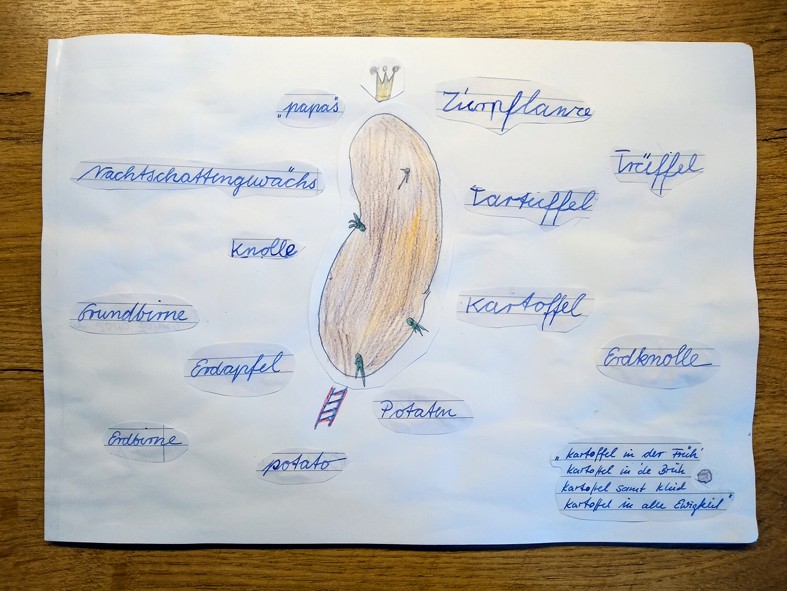 „papas"
Zierpflanze
Nachtschattengewächs
Träffel
Tartüffel
Knolle
Grundbirne
Kartoffel
Erdapfel
Erdknolle
Potaten
Erdbirne
potato
„Kartoffel in der Früh'
Kartoffel in de Brüh
Kartoffel samt Kleid
Kartoffel in alle Ewigkeit"